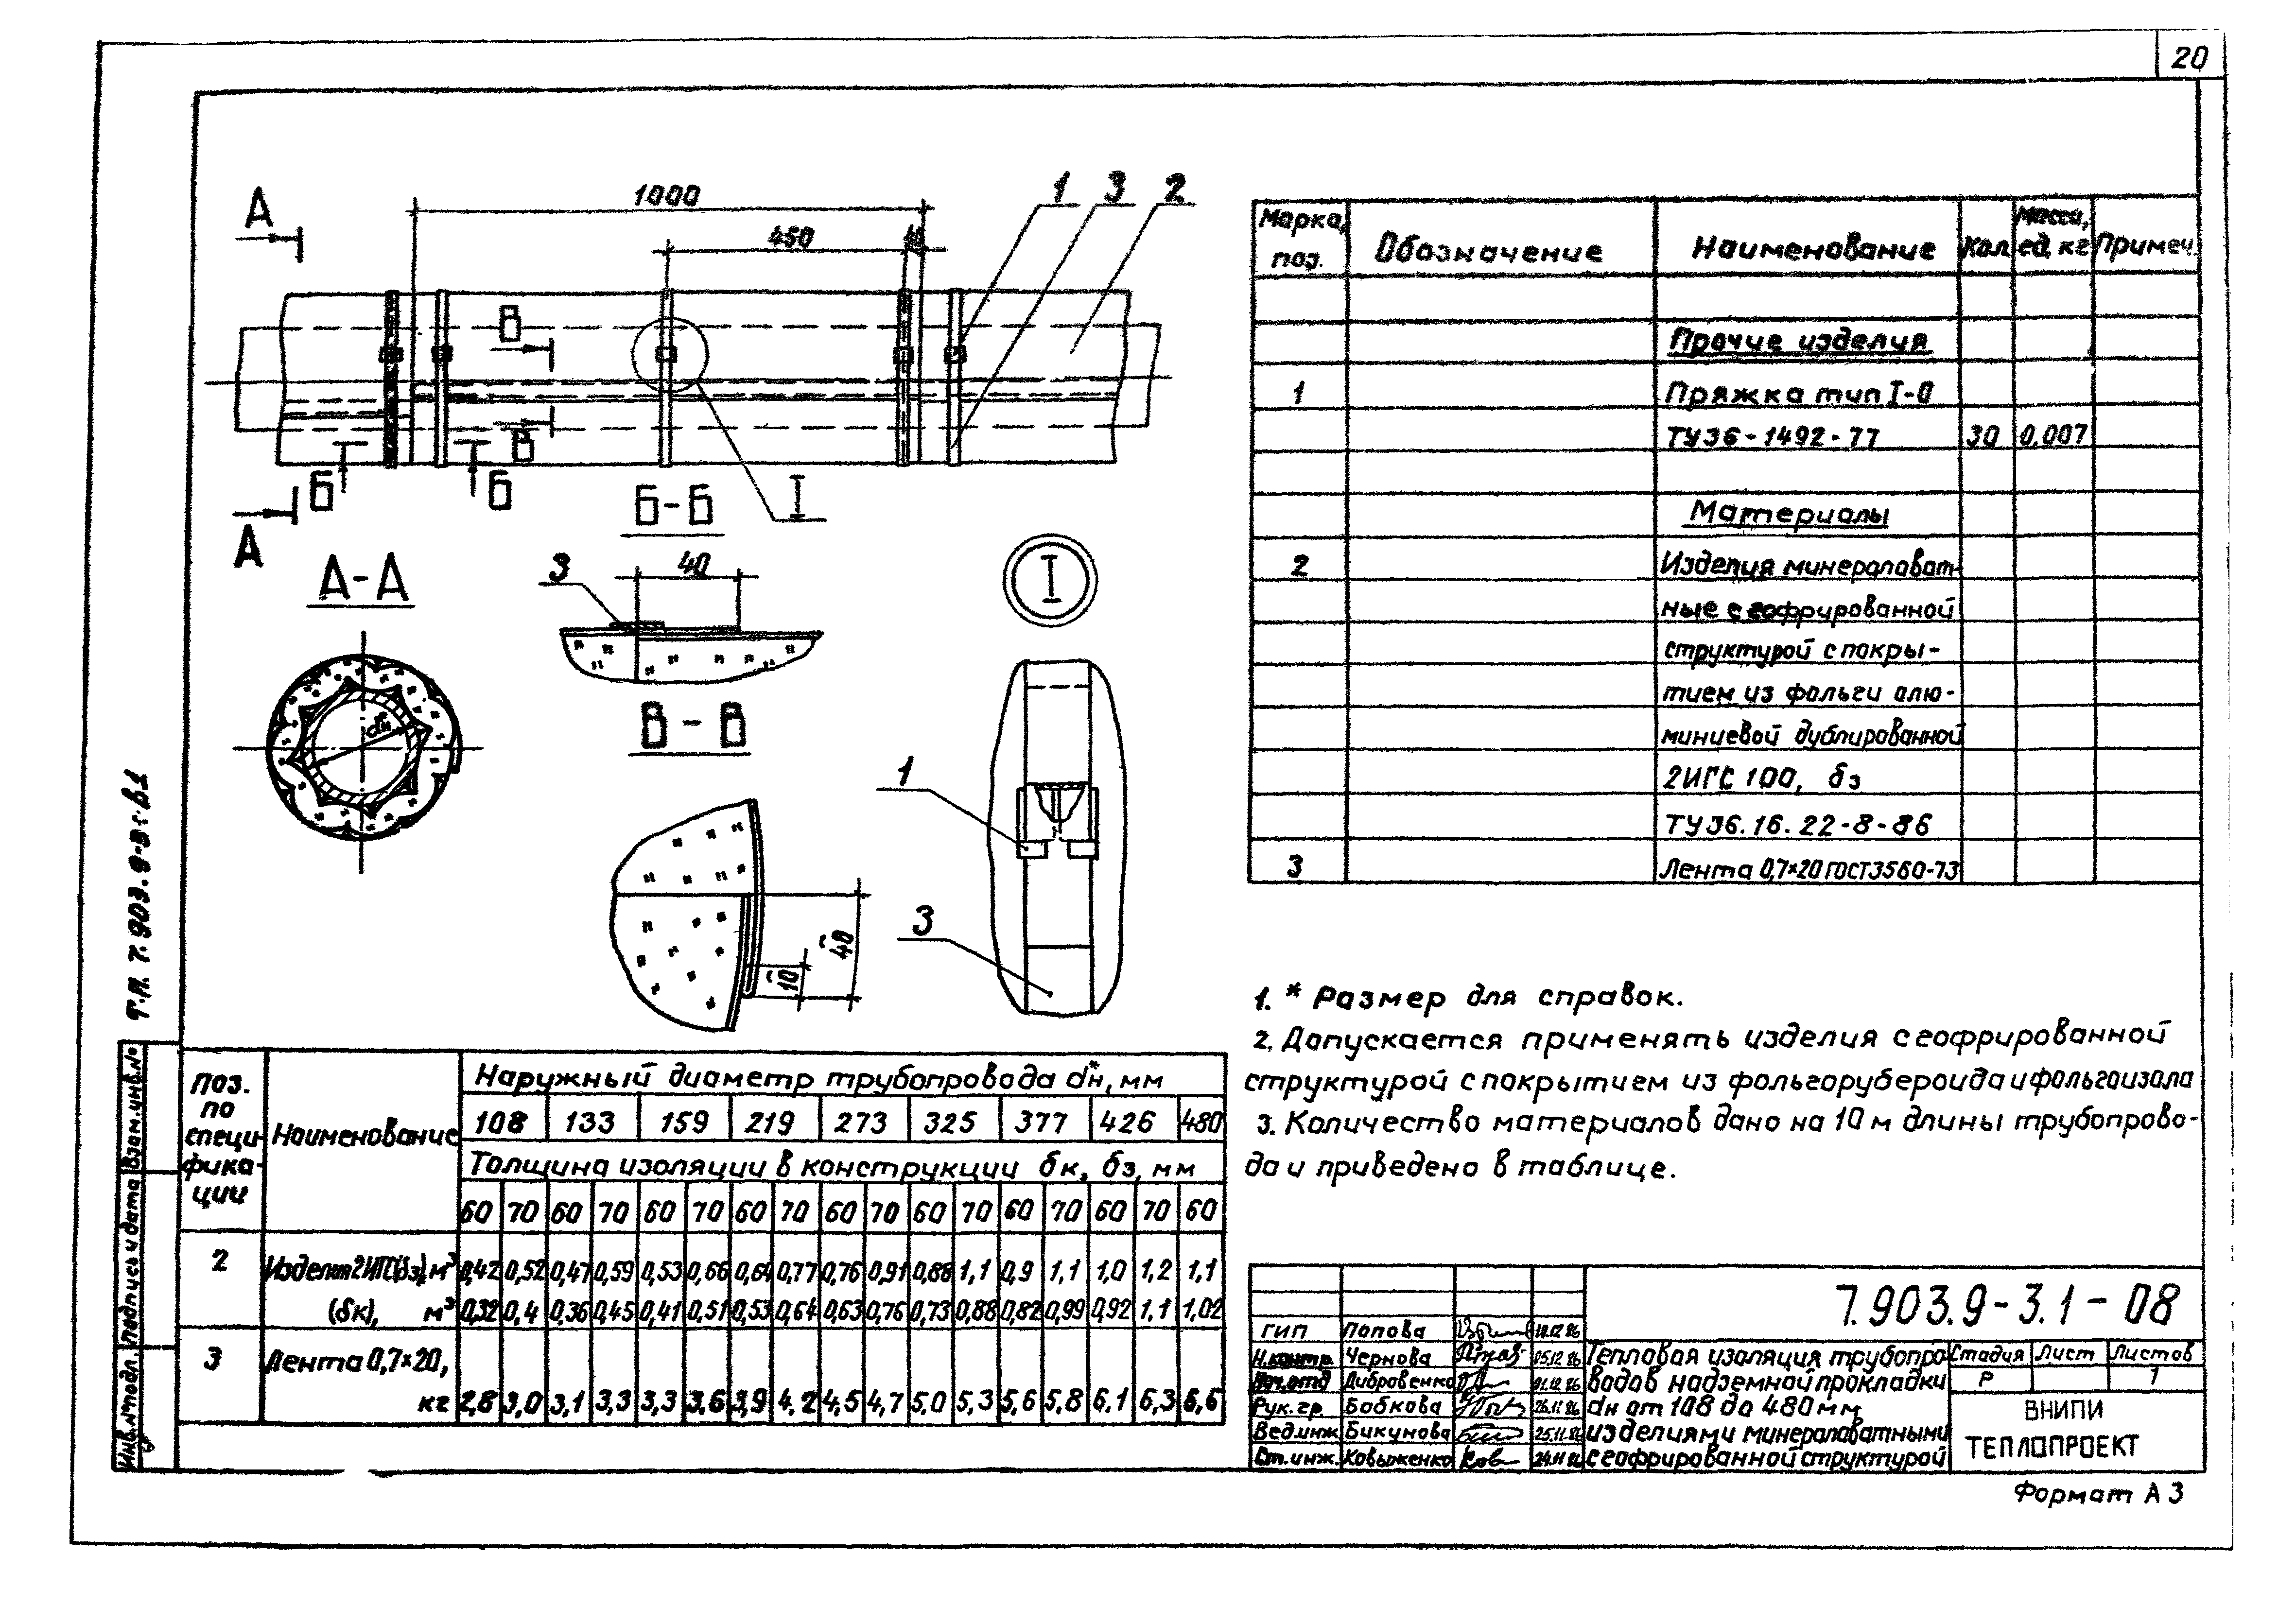 20
А
1000
1 3 2
450
В
В
Б Б
А
I
А-А
Б-Б
3 40
I
dн*
В-В
1
3
40
10
Марка, поз. Обозначение Наименование Кол. Масса, ед, кг Примеч.
Прочие изделия
1 Пряжка тип I-О
ТУ36-1492-77 30 0,007
Материалы
2 Изделия минераловат-
ные с гофрированной
структурой с покры-
тием из фольги алю-
миниевой дублированной
2ИГС 100, δз
ТУ36.16.22-8-86
3 Лента 0,7×20 ГОСТ3560-73
1. * Размер для справок.
2. Допускается применять изделия с гофрированной
структурой с покрытием из фольгорубероида и фольгоизола
3. Количество материалов дано на 10 м длины трубопрово-
да и приведено в таблице.
Поз. по специ-фика-ции Наименование Наружный диаметр трубопровода dн*, мм
108 133 159 219 273 325 377 426 480
Толщина изоляции в конструкции δк, δз, мм
60 70 60 70 60 70 60 70 60 70 60 70 60 70 60 70 60
2 Изделия 2ИГС(δз), м³ 0,42 0,52 0,47 0,59 0,53 0,66 0,64 0,77 0,76 0,91 0,88 1,1 0,9 1,1 1,0 1,2 1,1
(δк), м³ 0,32 0,4 0,36 0,45 0,41 0,51 0,53 0,64 0,63 0,76 0,73 0,88 0,82 0,99 0,92 1,1 1,02
3 Лента 0,7×20,
кг 2,8 3,0 3,1 3,3 3,3 3,6 3,9 4,2 4,5 4,7 5,0 5,3 5,6 5,8 6,1 6,3 6,6
Взам.инв.№
Подпись и дата
Инв.№подл.
7.903.9-3.1-08
ГИП Попова
Н.контр. Чернова 05.12.86
Нач.отд Дибровенко 01.12.86
Рук.гр. Бобкова 26.11.86
Вед.инж. Бикунова 25.11.86
Ст.инж. Ковыженко 24.11.86
Тепловая изоляция трубопро-
водов надземной прокладки
dн от 108 до 480 мм
изделиями минераловатными
с гофрированной структурой
Стадия Лист Листов
Р 1
ВНИПИ
ТЕПЛОПРОЕКТ
Формат А3